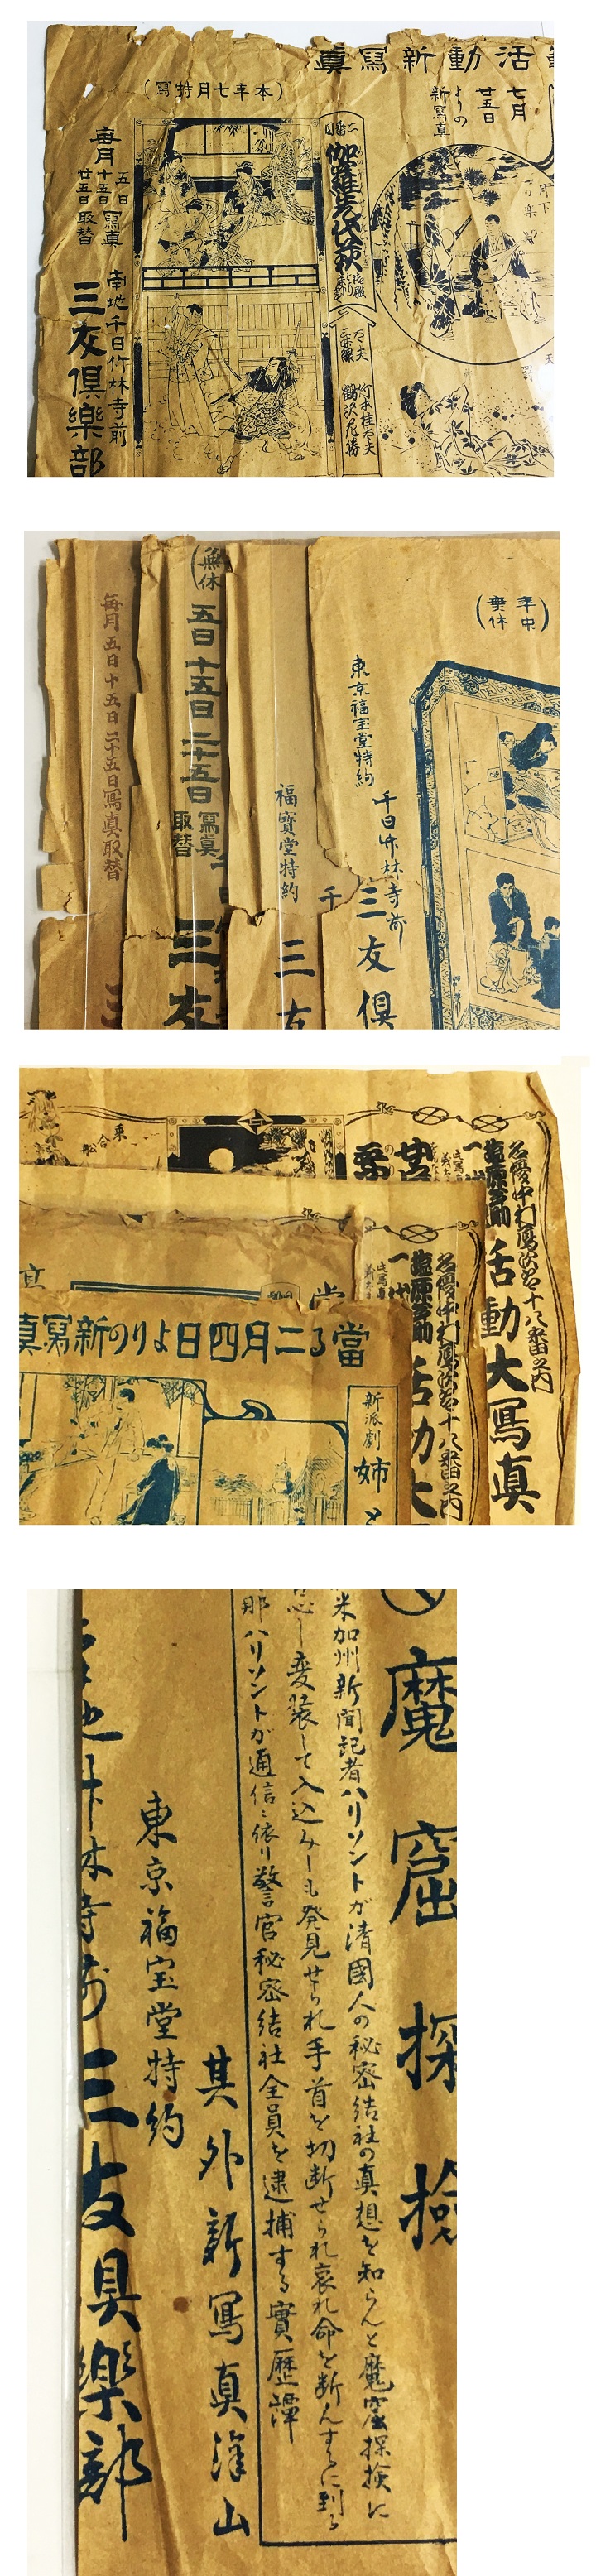 活動新寫眞
七月
廿五日
よりの
新寫真
(本年七月特寫)
二番目
伽羅先代萩
太夫
竹本桂太夫
毎月
五日
十五日
廿五日
寫真
取替
南地千日竹林寺前
三友倶樂部
(年中
無休)
東京福宝堂特約
千日竹林寺前
三友倶
福寶堂特約
千
三友
(無休
五日十五日二十五日
寫真
取替
三友
毎月五日十五日二十五日寫真取替
三
名優中村鴈治郎十八番之内
塩原多助
一代
活動大寫真
乗合船
名優中村鴈治郎十八番之内
塩原多助
一代
活動大
當る二月四日よりの新寫眞
新派劇
姉と
魔窟探検
米加州新聞記者ハリソントが清國人の秘密結社の真想を知らんと魔窟探検に
変装して入込みしも発見せられ手首を切断せられ哀れ命を断んするに到る
那ハリソントが通信に依り警官秘密結社全員を逮捕する實歴譚
其外新寫真澤山
東京福宝堂特約
竹林寺前三友倶樂部